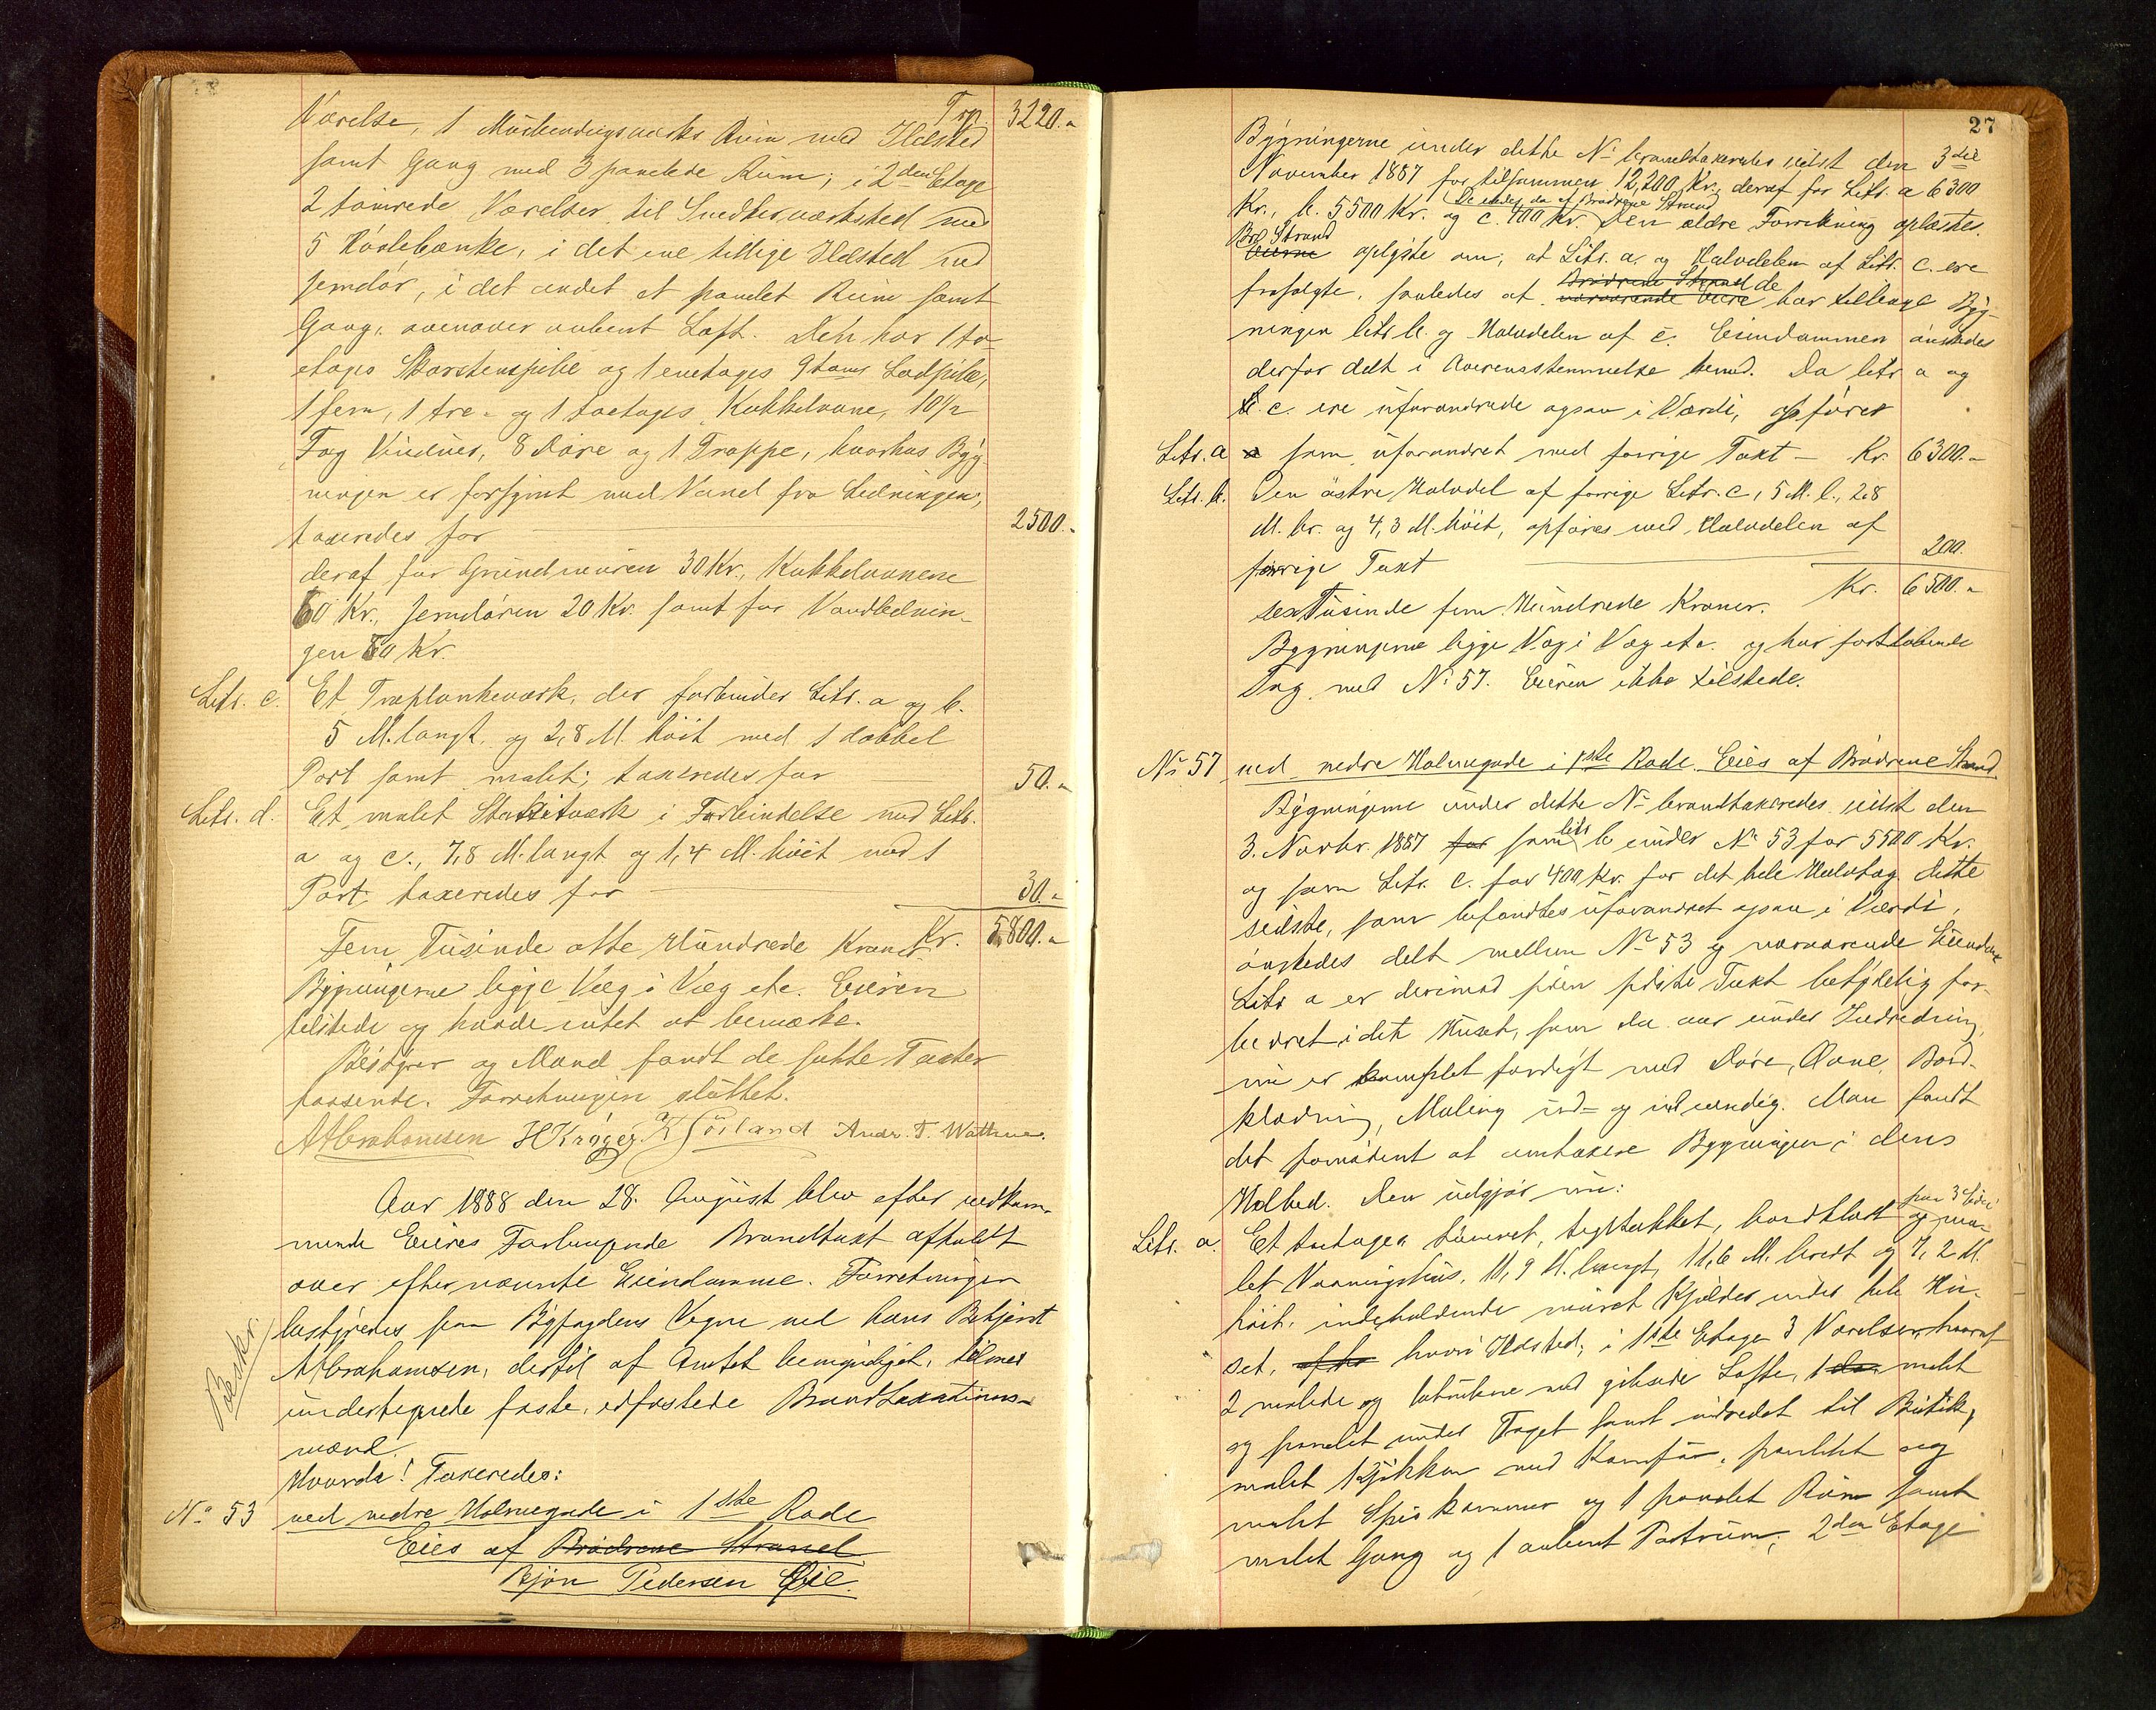 Trsp. 3220.-
Værelse, 1 Rum med Ildsted
samt Gang med 3 panelede Rum; i 2den Etage
2 tømrede Værelser til Snedkerværksted med
5 Høvlebænke, i det ene tillige Ildsted med
Jerndør, i det andet et panelet Rum samt
Gang, ovenover aabent Loft. Den har 1 to-
etages Skorstenspibe og 1 enetages 9toms Lodpibe,
1 fem, 1 tre- og 1 toetages Kakkelovne, 10 1/2
Fag Vinduer, 8 Døre og 1 Trappe, hvorhos Byg-
ningen er forsynt med Vand fra Ledningen,
taxeredes for 2500.-
deraf for Grundmuren 30 Kr., Kakkelovnene
60 Kr., Jerndøren 20 Kr. samt for Vandlednin-
gen 50 Kr.
Litr. c. Et Træplankeværk, der forbinder Litr. a og b.
5 M. langt og 2,8 M. høit med 1 dobbel
Port samt malet; taxeredes for 50.-
Litr. d. Et malet Stakitværk i Forbindelse med Litr.
a og c., 7,8 M. langt og 1,4 M. høit med 1
Port, taxeredes for 30.-
Fem Tusinde otte Hundrede Kroner. Kr. 5800.-
Bygningerne ligge Væg i Væg etc. Eieren
tilstede og havde intet at bemærke.
Bestyrer og Mænd fandt de satte Taxter
passende. Forretningen sluttet.
A Abrahamsen H Krøger K Sørland Andr. T. Wathne.
Aar 1888 den 28. August blev efter vedkom-
mende Eieres Forlangende Brandtaxt afholdt
over efternævnte Eiendomme. Forretningen
bestyredes paa Byfogdens Vegne ved hans Betjent
Abrahamsen, dertil af Amtet bemyndiget, tilmed
undertegnede faste, edfæstede Brandtaxations-
mænd.
Beskr.
Hvorda! Taxeredes:
No 53 ved nedre Holmegade i 1ste Rode
Eies af Brødrene Strand
Bjørn Pedersen Øie.
27
Bygningerne under dette No brandtaxeredes sidst den 3die
November 1887 for tilsammen 12,200 Kr., deraf for Litr. a 6300
Kr., b. 5500 Kr. og c. 400 Kr. Den ældre Forretning oplæstes.
da af Brødrene Strand
Brd Strand
Eierne oplyste om, at Litr. a. og Halvdelen af Litr. c. ere
frasolgte, saaledes at nærværende Eiere har tilbage Byg-
Brødrene Strand de
ningen litr b. og Halvdelen af c. Eiendommen ønskedes
derfor delt i Overensstemmelse hermed. Da litr a og
c. ere uforandrede ogsaa i Værdi, opføres
Litr. a som uforandret med forrige Taxt - Kr. 6300.-
Litr. b. Den østre Halvdel af forrige Litr. c, 5 M. l., 2,8
M. br. og 4,3 M. høit, opføres med Halvdelen af
forrige Taxt 200.
sex Tusinde fem Hundrede Kroner. Kr. 6500.-
Bygningerne ligge Væg i Væg etc. og har fortløbende
Tag med No 57. Eieren ikke tilstede.
No 57 ved nedre Holmegade i 1ste Rode. Eies af Brødrene Strand.
Bygningerne under dette No brandtaxeredes sidst den
3. Novbr. 1887 for som litr b under No 53 for 5500 Kr.
og som Litr. c. for 400 Kr. for det hele Halvtag dette
sidste, som befandtes uforandret ogsaa i Værdi,
ønskedes delt mellem No 53 og nærværende Eiendom
Litr a er derimod siden sidste Taxt betydelig for-
bedret idet Huset, som da var under Indredning,
nu er komplet færdigt med Døre, Ovne, Bord-
klædning, Maling ind- og udvendig. Man fandt
det fornødent at omtaxere Bygningen i dens
Helhed. Den udgjør nu:
Litr. a. Et toetages tømret, tegltækket, bordklædt og ma-
paa 3 Sider
let Vaaningshus, 11,9 M. langt, 11,6 M. bredt og 7,2 M.
høit, indeholdende muret Kjælder under hele Hu-
set, hvori Ildsted; i 1ste Etage 3 Værelser, hvoraf
2 malede og betrukne med gibsede Lofter, 1 malet
og panelet under Taget samt indredet til Butik,
malet Kjøkken med Komfür, panelet og
malet Spiskammer og 1 panelet Rum samt
malet Gang og 1 aabent Portrum; 2den Etage